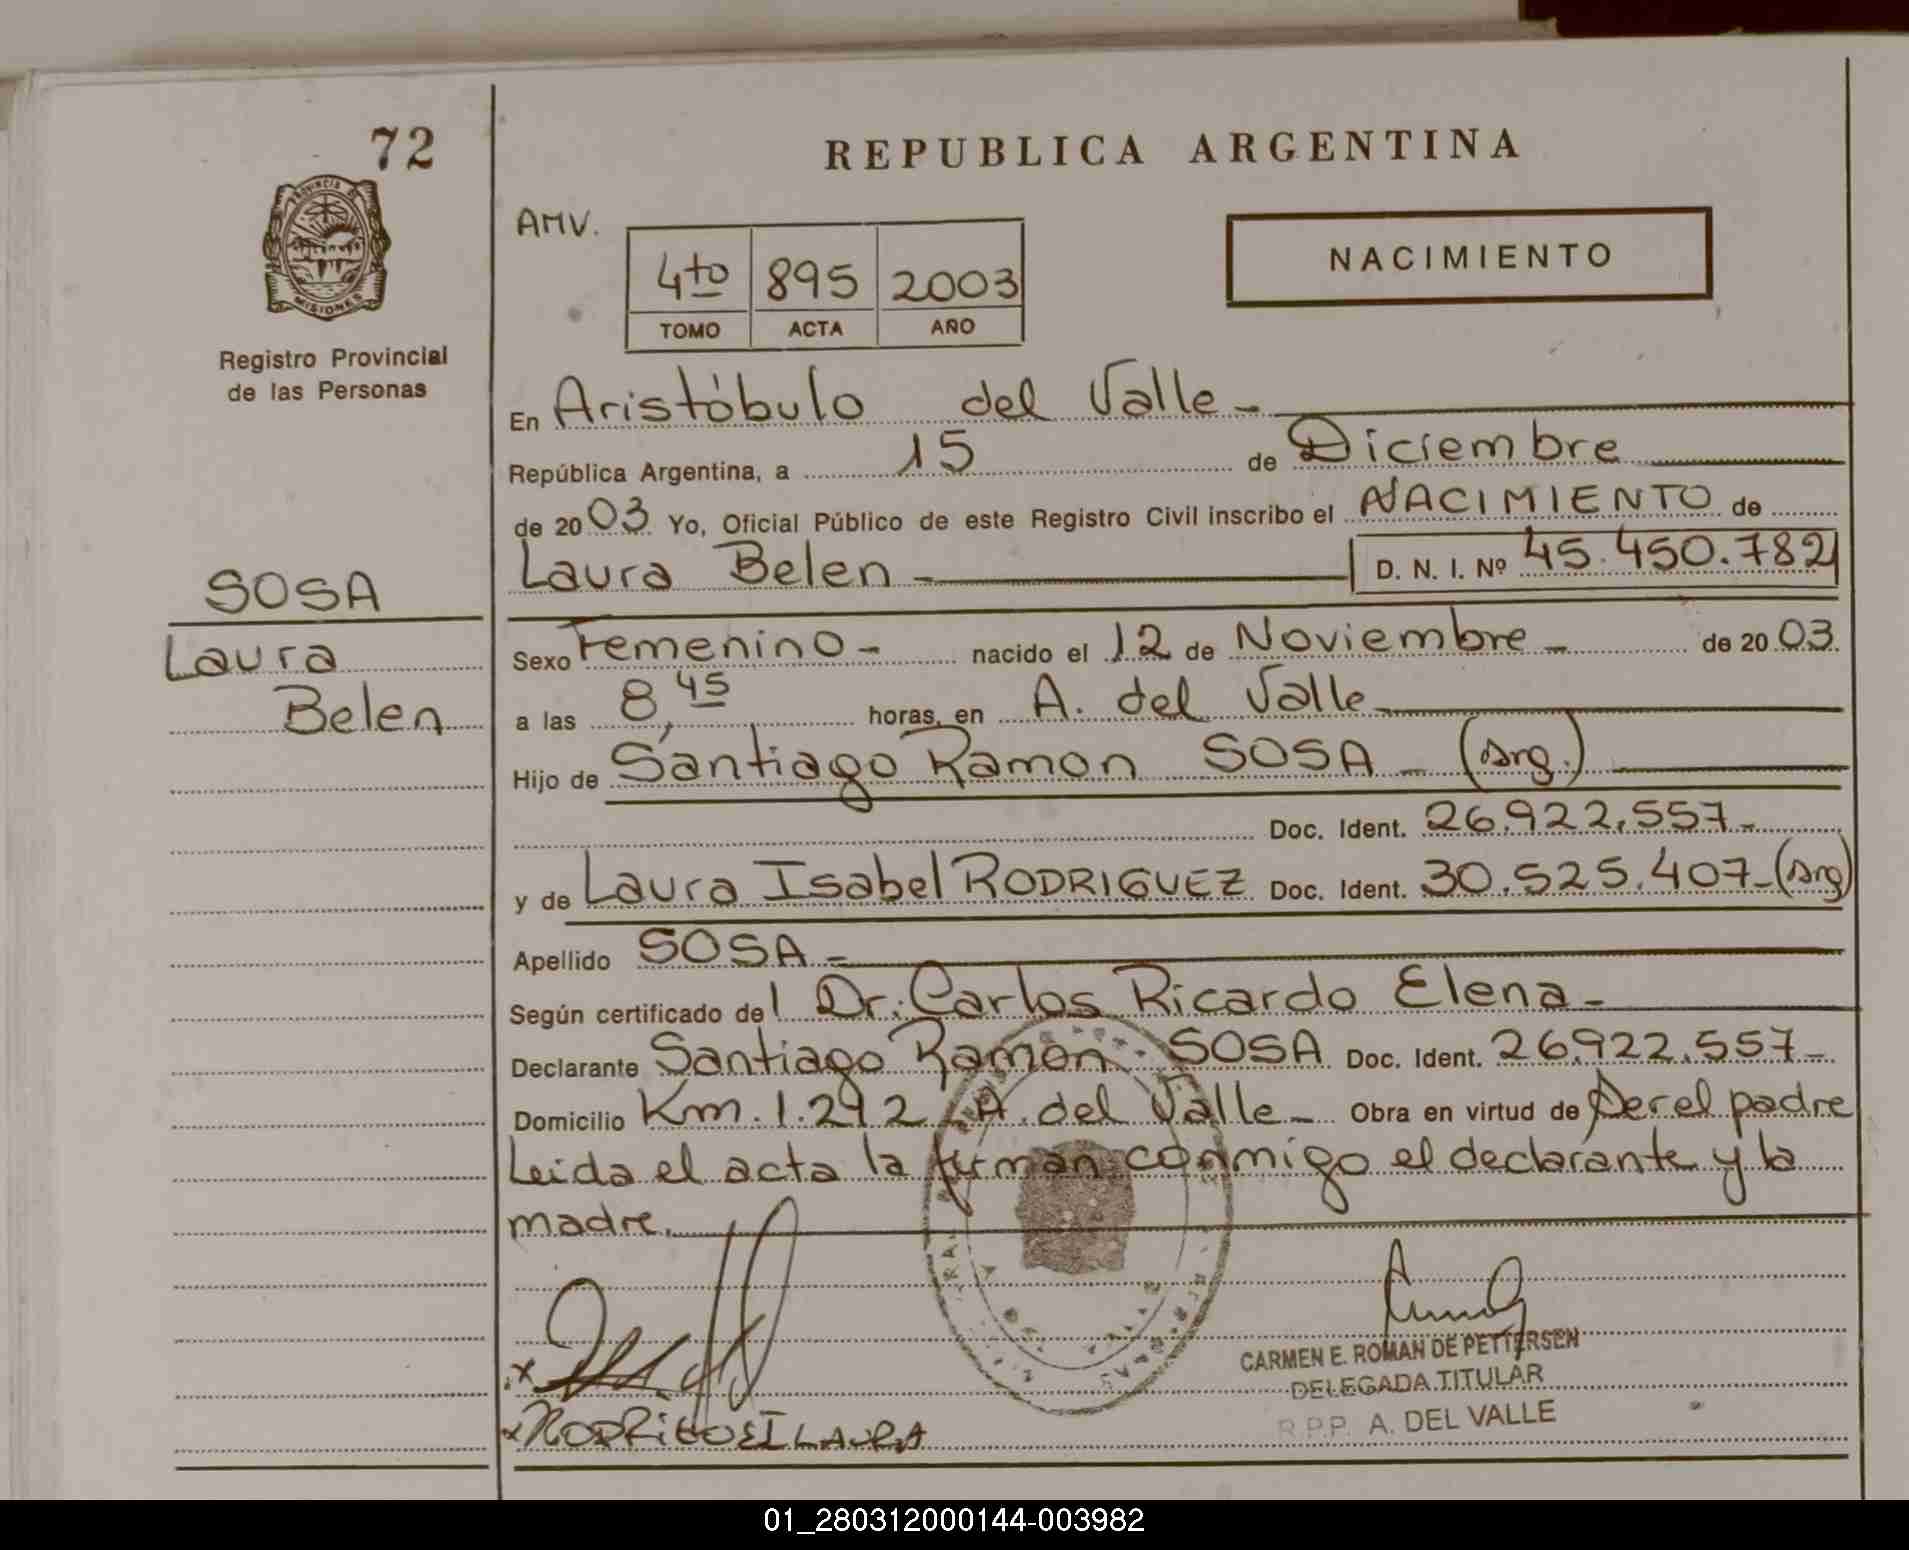 72
REPUBLICA ARGENTINA
PROVINCIA DE
MISIONES
Registro Provincial
de las Personas
AMV.
4to 895 2003
TOMO ACTA AÑO
NACIMIENTO
En Aristóbulo del Valle -
República Argentina, a 15 de Diciembre
de 2003 Yo, Oficial Público de este Registro Civil inscribo el NACIMIENTO de
Laura Belen - D. N. I. Nº 45.450.782
SOSA
Laura
Belen
Sexo Femenino - nacido el 12 de Noviembre - de 2003.
a las 8,45 horas, en A. del Valle
Hijo de Santiago Ramon SOSA - (Arg.)
Doc. Ident. 26.922.557-
y de Laura Isabel RODRIGUEZ Doc. Ident. 30.525.407-(Arg)
Apellido SOSA -
Según certificado del Dr. Carlos Ricardo Elena -
Declarante Santiago Ramon SOSA Doc. Ident. 26.922.557-
Domicilio Km. 1.292 A. del Valle - Obra en virtud de Ser el padre
Leida el acta la firman conmigo el declarante y la
madre.
CARMEN E. ROMAN DE PETTERSEN
DELEGADA TITULAR
R.P.P. A. DEL VALLE
x RODRIGUEZ LAURA
01_280312000144-003982